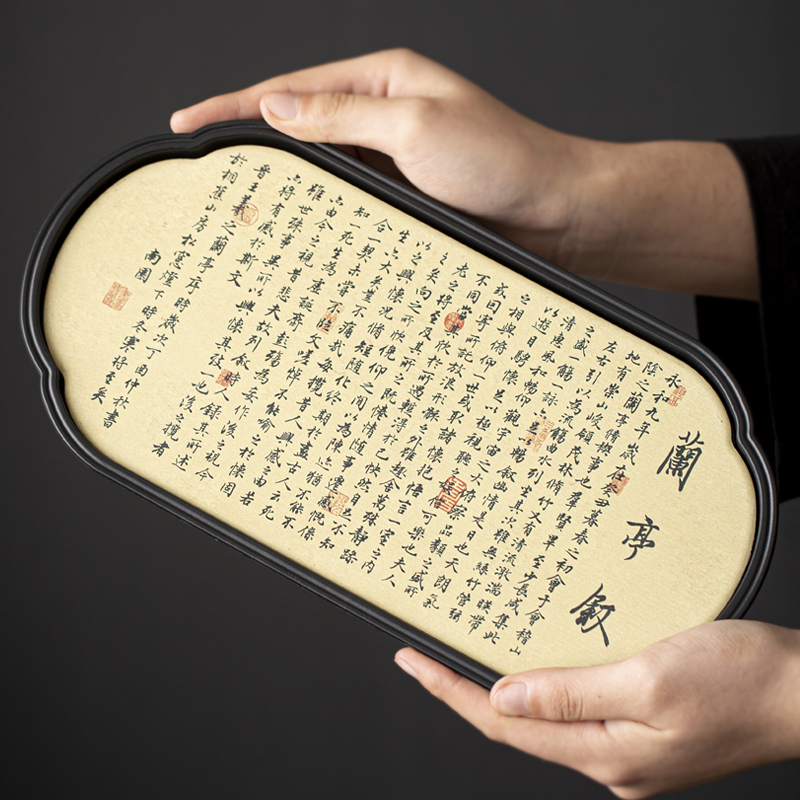 蘭亭敘
永和九年歲在癸丑暮春之初會于會稽山
陰之蘭亭脩稧事也羣賢畢至少長咸集此
地有崇山峻領茂林脩竹又有清流激湍暎帶
左右引以為流觴曲水列坐其次雖無絲竹管弦
之盛一觴一詠亦足以暢敘幽情是日也天朗氣
清惠風和暢仰觀宇宙之大俯察品類之盛所
以遊目騁懷足以極視聽之娛信可樂也夫人
之相與俯仰一世或取諸懷抱悟言一室之內
或因寄所託放浪形骸之外雖趣舍萬殊靜躁
不同當其欣於所遇暫得於己快然自足不知
老之將至及其所之既惓情隨事遷感慨係
之矣向之所欣俛仰之間以為陳迹猶不能不
以之興懷況脩短隨化終期於盡古人云死
生亦大矣豈不痛哉每攬昔人興感之由若
合一契未嘗不臨文嗟悼不能喻之於懷固
知一死生為虛誕齊彭殤為妄作後之視今
亦由今之視昔悲夫故列敘時人錄其所述
雖世殊事異所以興懷其致一也後之攬者
亦將有感於斯文
晉王羲之蘭亭序時歲次丁酉仲秋書
於桐蕉山房松窗燈下時冬寒將至矣
南園